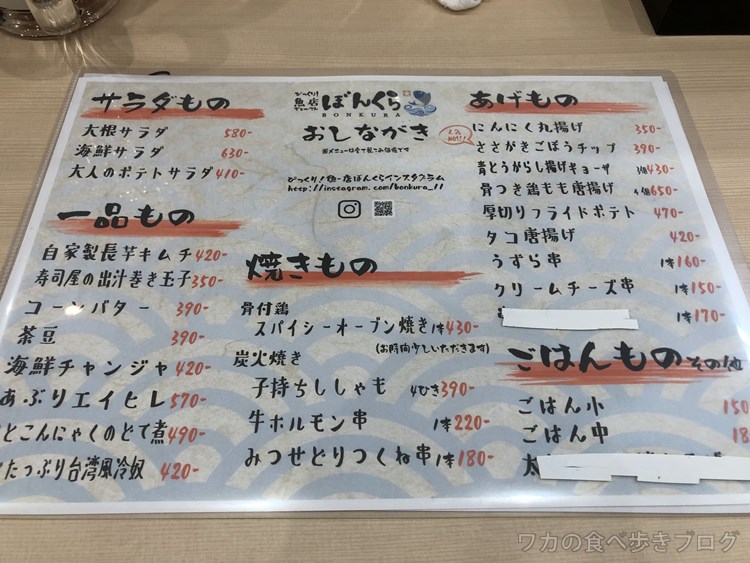 サラダもの
大根サラダ 580-
海鮮サラダ 630-
大人のポテトサラダ 410-
一品もの
自家製長芋キムチ 420-
寿司屋の出汁巻き玉子 350-
コーンバター 390-
茶豆 390-
海鮮チャンジャ 420-
あぶりエイヒレ 570-
とこんにゃくのどて煮 490-
たっぷり台湾風冷奴 420-
びっくり!
魚店
ぼんくら
BONKURA
おしながき
※メニューは全て税こみ価格です
びっくり!魚店ぼんくらインスタグラム
http://instagram.com/bonkura_11
焼きもの
骨付鶏
スパイシーオーブン焼き 1本430-
(お時間少しいただきます)
炭火焼き
子持ちししゃも 4ひき390-
牛ホルモン串 1本220-
みつせどりつくね串 1本180-
あげもの
にんにく丸揚げ 350-
ささがきごぼうチップ 390-
青とうがらし揚げギョーザ 430-
骨つき鶏もも唐揚げ 650-
厚切りフライドポテト 470-
タコ唐揚げ 420-
うずら串 1本160-
クリームチーズ串 1本150-
1本170-
ごはんもの その他
ごはん小 150
ごはん中 18
太
ワカの食べ歩きブログ